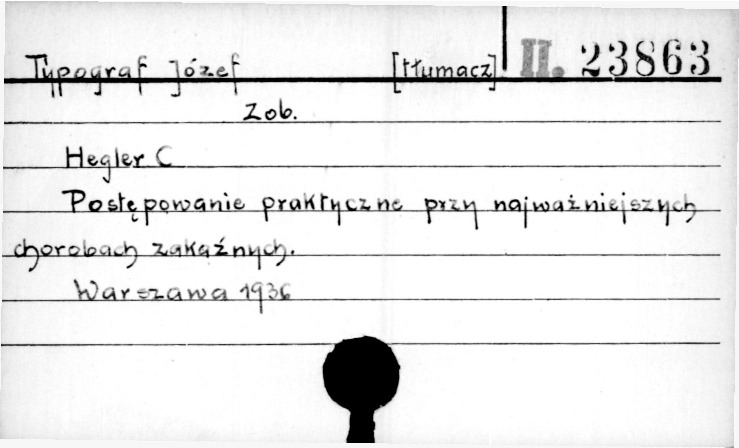 Typograf Józef [tłumacz] II. 23863
Zob.
Hegler C
Postępowanie praktyczne przy najważniejszych
chorobach zakaźnych.
Warszawa 1936